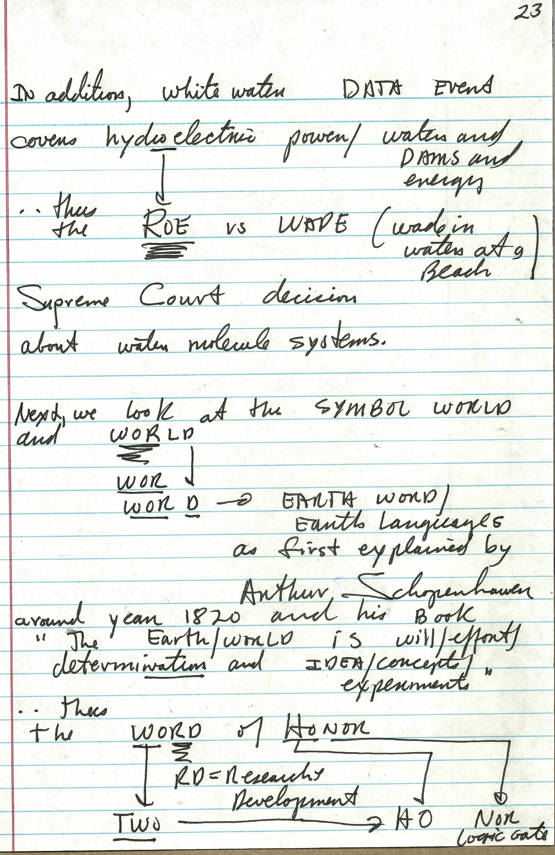 23
In addition, white water DATA Event
covers hydroelectric power/ waters and
DAMS and
energy
.. thus
the ROE vs WADE (wade in
waters at a
Beach)
Supreme Court decision
about water molecule systems.
Next, we look at the SYMBOL WORLD
and WORLD
WOR
WOR D → EARTH WORD/
Earth Languages
as first explained by
Arthur Schopenhauer
around year 1820 and his Book
" The Earth/WORLD is will/effort/
determination and IDEA/concepts/
experiments "
.. thus
the WORD of HONOR
RD = Research &
Development
TWO → HO NOR
Logic Gate